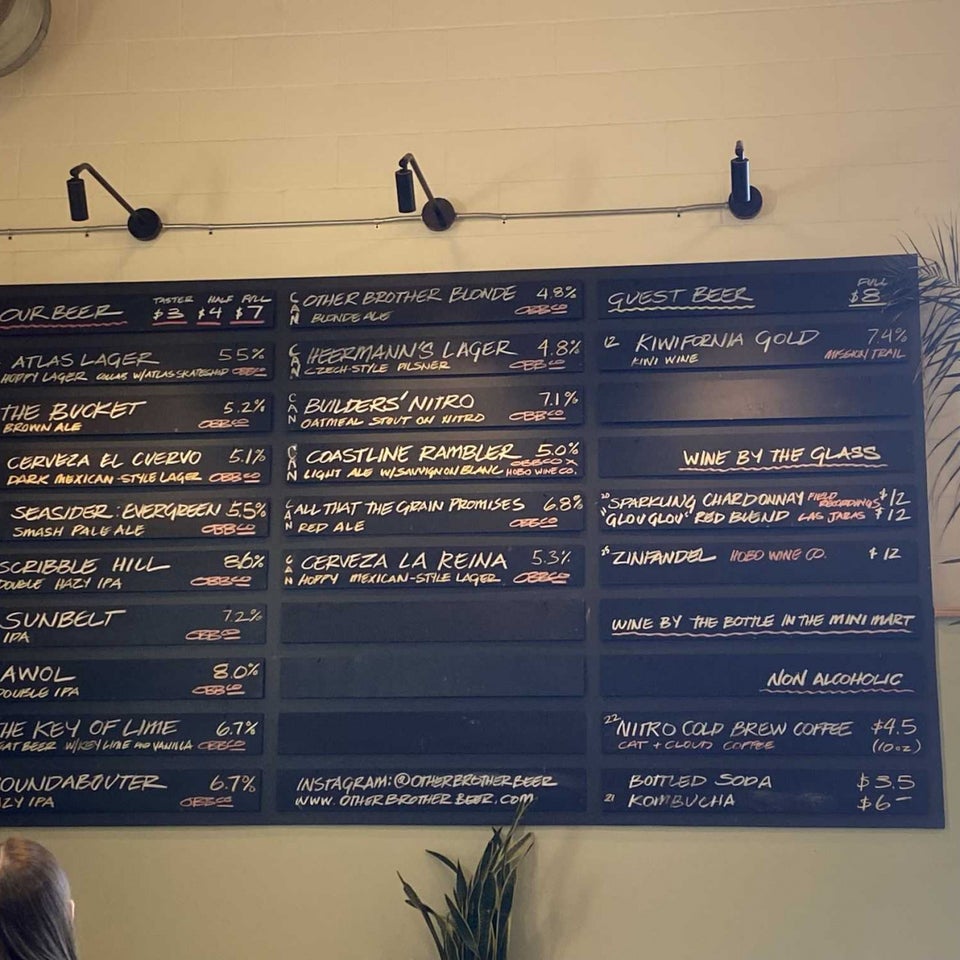 OUR BEER TASTER HALF FULL
$3 $4 $7
ATLAS LAGER 5.5%
HOPPY LAGER COLLAB W/ATLAS SKATESHOP OBBCO
THE BUCKET 5.2%
BROWN ALE OBBCO
CERVEZA EL CUERVO 5.1%
DARK MEXICAN-STYLE LAGER OBBCO
SEASIDER: EVERGREEN 5.5%
SMASH PALE ALE OBBCO
SCRIBBLE HILL 8.6%
DOUBLE HAZY IPA OBBCO
SUNBELT 7.2%
IPA OBBCO
AWOL 8.0%
DOUBLE IPA OBBCO
THE KEY OF LIME 6.7%
EAT BEER W/KEY LIME AND VANILLA OBBCO
OUNDABOUTER 6.7%
ZY IPA OBBCO
CAN OTHER BROTHER BLONDE 4.8%
BLONDE ALE OBBCO
CAN HEERMANN'S LAGER 4.8%
CZECH-STYLE PILSNER OBBCO
CAN BUILDERS' NITRO 7.1%
OATMEAL STOUT ON NITRO OBBCO
CAN COASTLINE RAMBLER 5.0%
LIGHT ALE W/SAUVIGNON BLANC OBBCO X HOBO WINE CO.
CAN ALL THAT THE GRAIN PROMISES 6.8%
RED ALE OBBCO
CAN CERVEZA LA REINA 5.3%
HOPPY MEXICAN-STYLE LAGER OBBCO
INSTAGRAM: @OTHERBROTHERBEER
WWW.OTHERBROTHERBEER.COM
GUEST BEER FULL
$8
12 KIWIFORNIA GOLD 7.4%
KIWI WINE MISSION/TRAIL
WINE BY THE GLASS
20 SPARKLING CHARDONNAY FIELD RECORDINGS $12
"GLOU GLOU" RED BLEND LAS JARAS $12
ZINFANDEL HOBO WINE CO. $12
WINE BY THE BOTTLE IN THE MINI MART
NON ALCOHOLIC
22 NITRO COLD BREW COFFEE $4.5
CAT + CLOUD COFFEE (10oz)
BOTTLED SODA $3.5
21 KOMBUCHA $6-